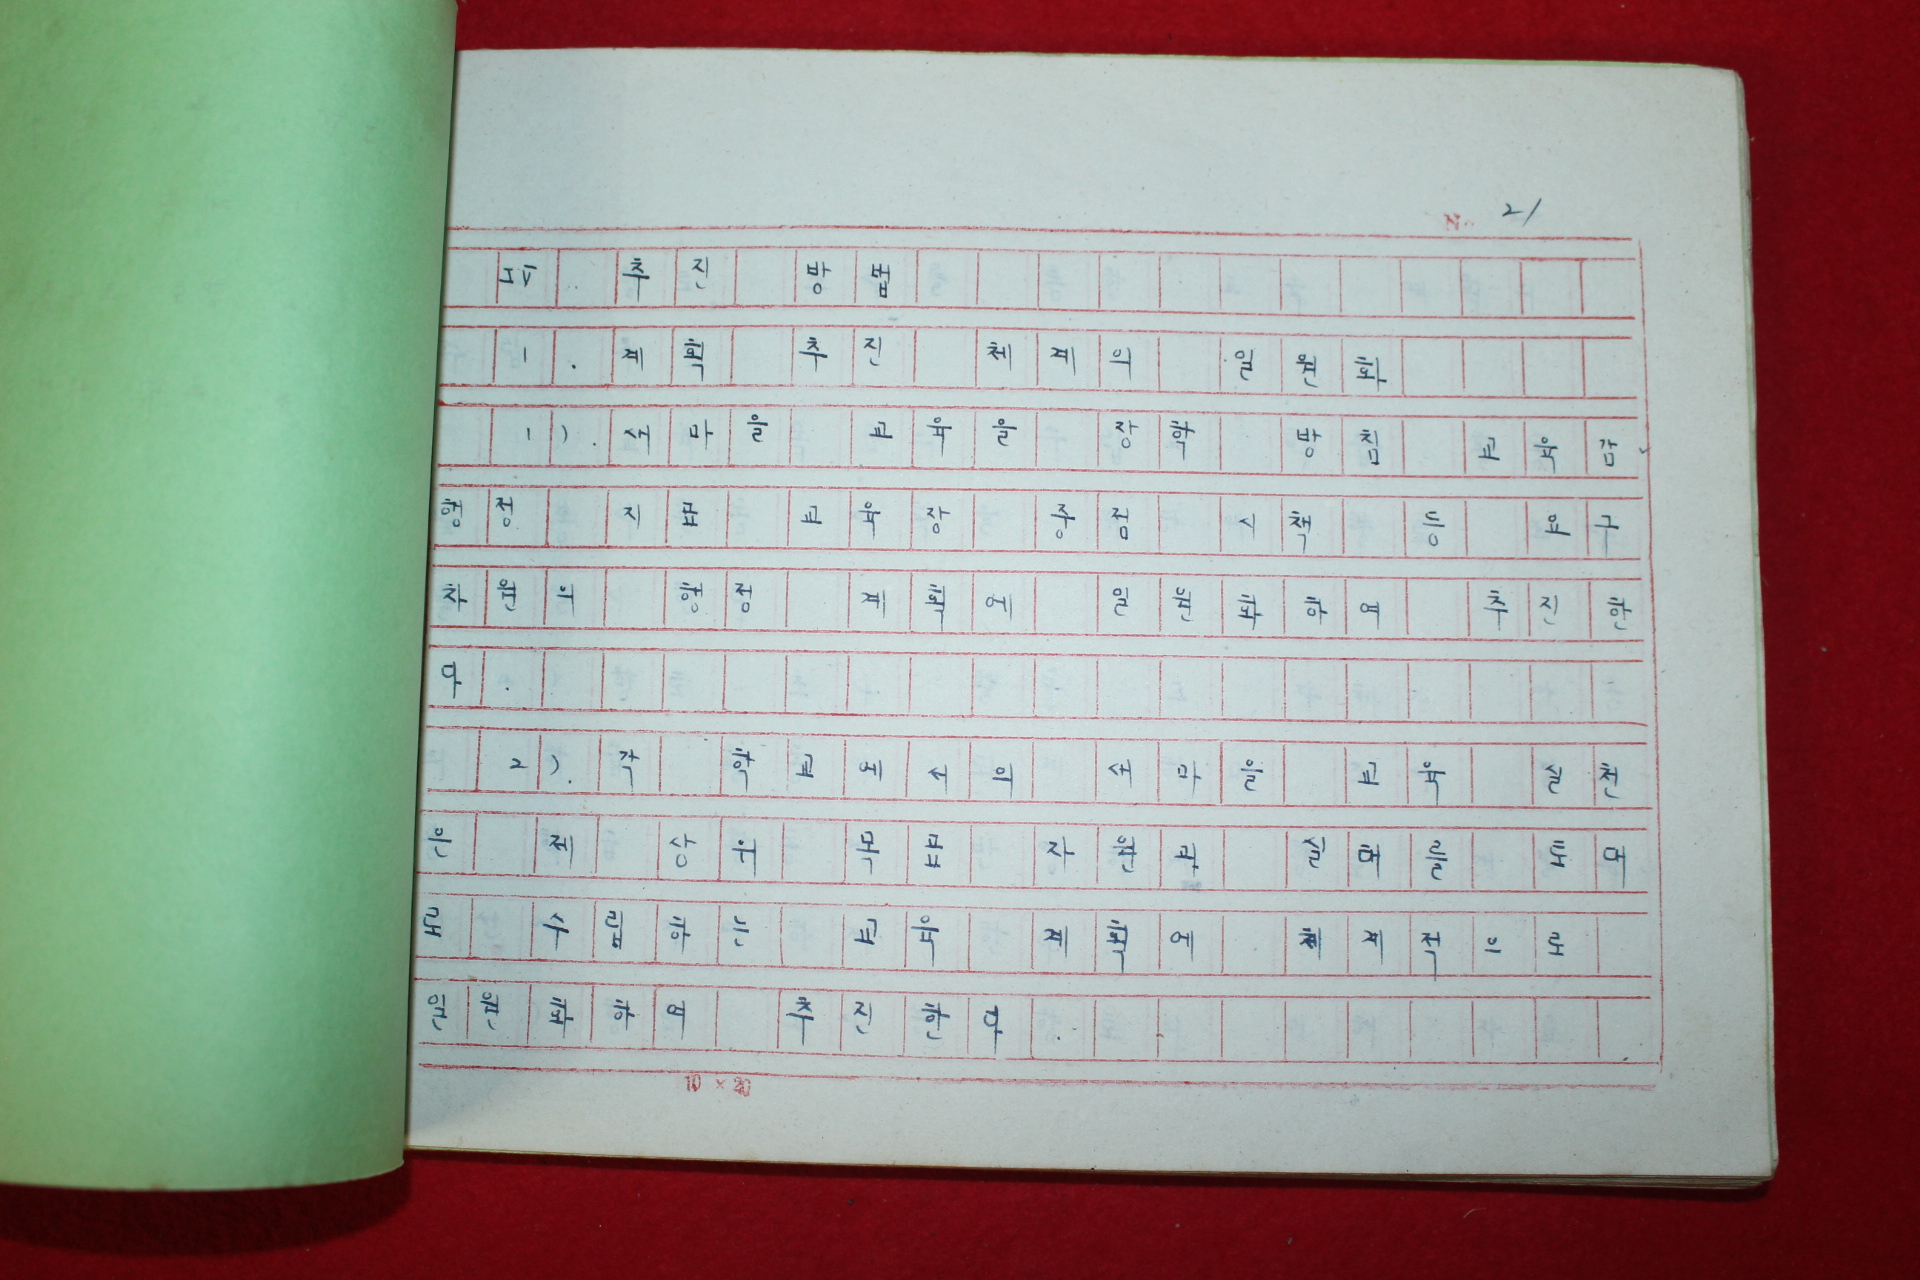 21
Ⅳ. 추진 방법
1. 계획 추진 체제의 일원화
1). 새마을 교육을 장학 방침 교육감
행정 지표 교육장 중점 시책 등
차원의 행정 계획에 일원화하여 추진한
다.
2). 각 학교에서의 새마을 교육 실천
은 자원과
수립하는 교육 계획에 체계적으로
일원화하여 추진한다.
10 × 20